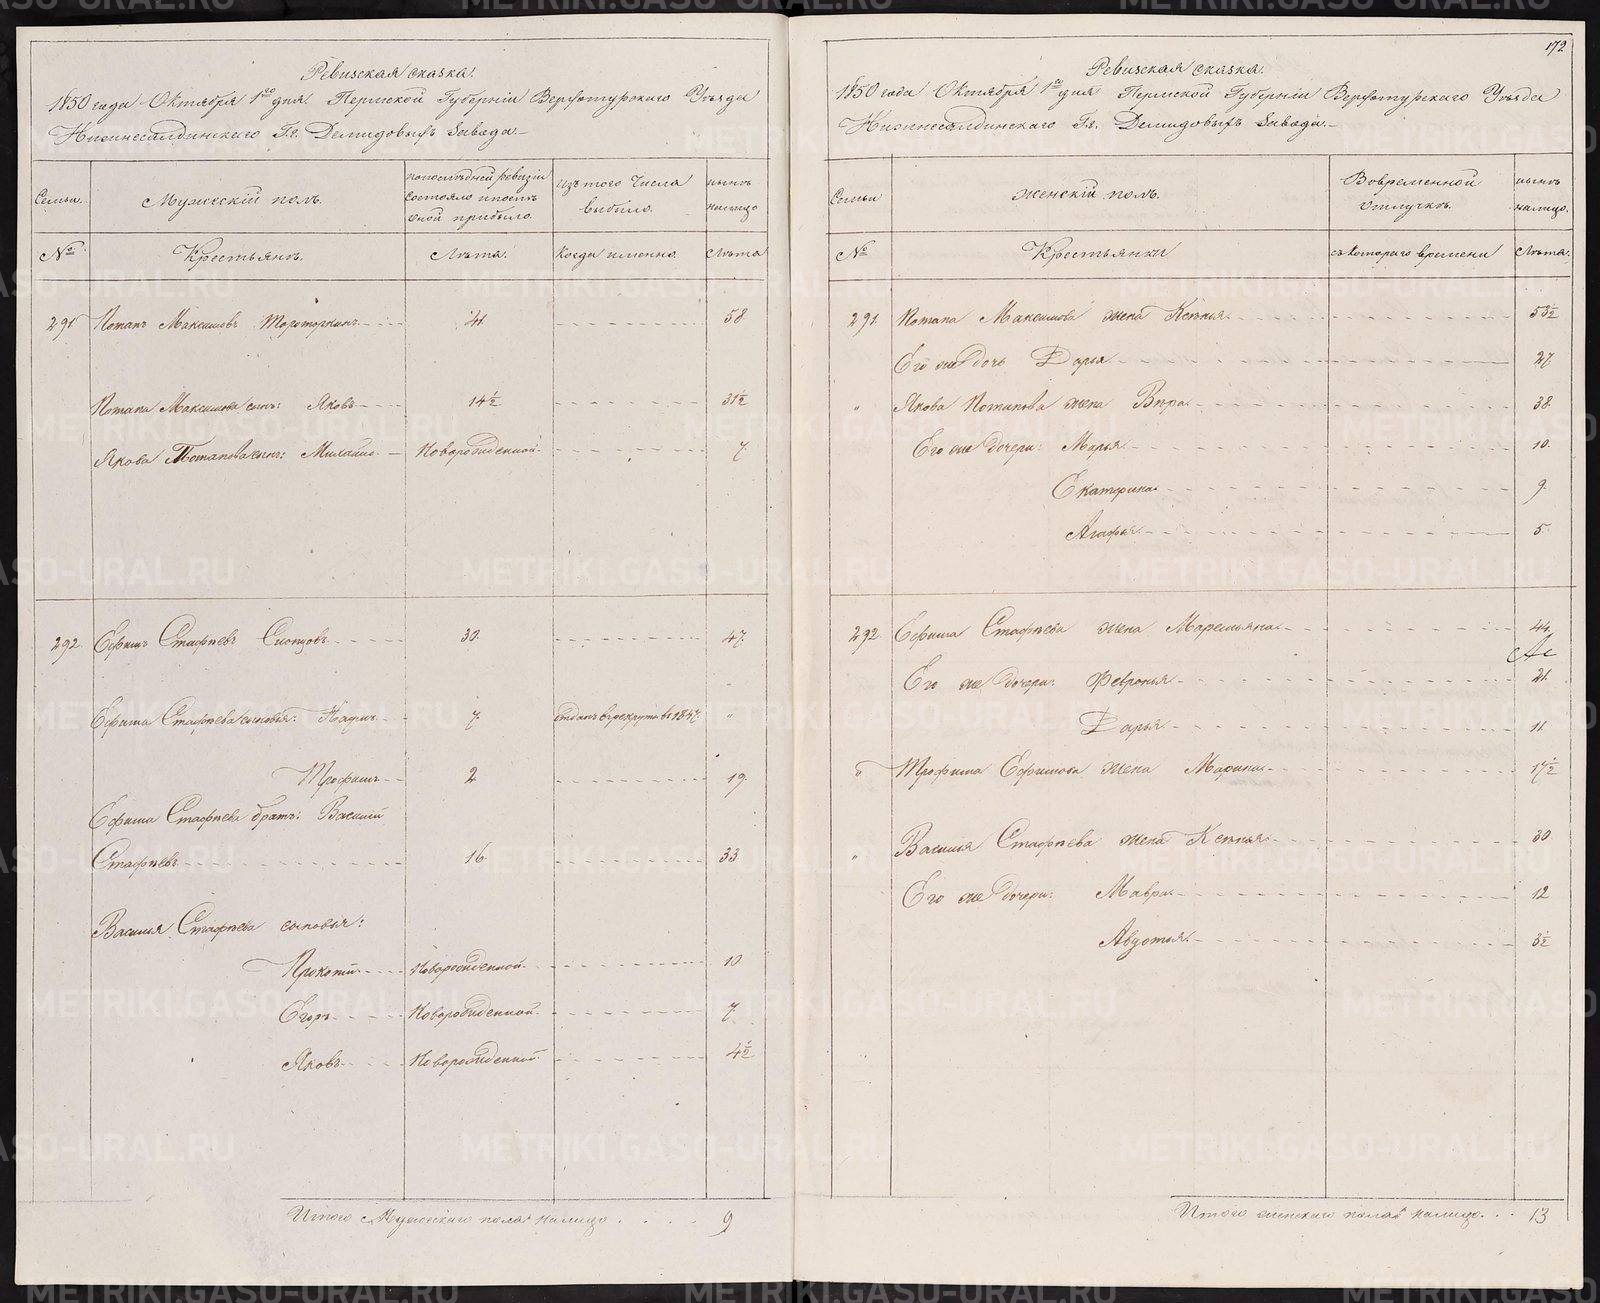 Ревизская сказка.
1850 года Октября 1го дня. Пермской Губерніи Верхотурскаго Уѣзда
Нижнесалдинскаго Гг. Демидовыхъ Завода
Семьи. Мужескій полъ. По послѣдней ревизіи состояло и послѣ оной прибыло. Изъ того числа выбыло. Нынѣ на лицо
№ Крестьянъ. Лѣта. Когда именно. Лѣта
291 Потапъ Максимовъ 41. 58
Потапа Максимова сынъ: Яковъ 14½ 31½
Якова Потапова сынъ: Михайло. Новорожденной. 7.
292 Ефимъ Стафѣевъ 30. 47.
Ефима Стафѣева сыновья: 7. отданъ в рекруты въ 1847. "
Трофимъ 2 19.
Ефима Стафѣева братъ: Василій
Стафѣевъ 16. 33
Василія Стафѣева сыновья:
Прокопій Новорожденной. 10
Егоръ Новорожденной. 7.
Яковъ Новорожденной. 4½
Итого Мужескаго пола на лицо . . . . 9
172
Ревизская сказка.
1850 года Октября 1го дня Пермской Губерніи Верхотурскаго Уѣзда
Нижнесалдинскаго Гг. Демидовыхъ Завода.
Семьи Женскій полъ. Во временной отлучкѣ. Нынѣ на лицо.
№ Крестьянки съ котораго времени Лѣта.
291. Потапа Максимова жена Ксенья. 53½
Его же дочь Дарья 27.
" Якова Потапова жена Вѣра. 38
Его же дочери: Марья 10.
Екатерина 9.
Агафья 5
292 Ефима Стафѣева жена Маремьяна. 44.
Его же дочери: Февронья 21.
Дарья 11.
" Трофима Ефимова жена Марина 17½
" Василья Стафѣева жена Ксенья 30
Его же дочери: Мавра 12
Авдотья 3½
Итого женскаго пола на лицо. . . 13
METRIKI.GASO-URAL.RU